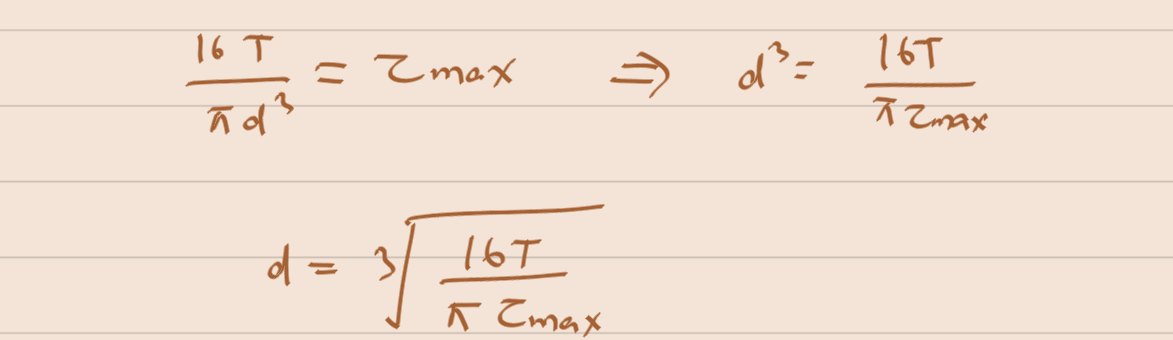 16T/πd³ = τmax ⇒ d³ = 16T/πτmax
d = ³√(16T/πτmax)